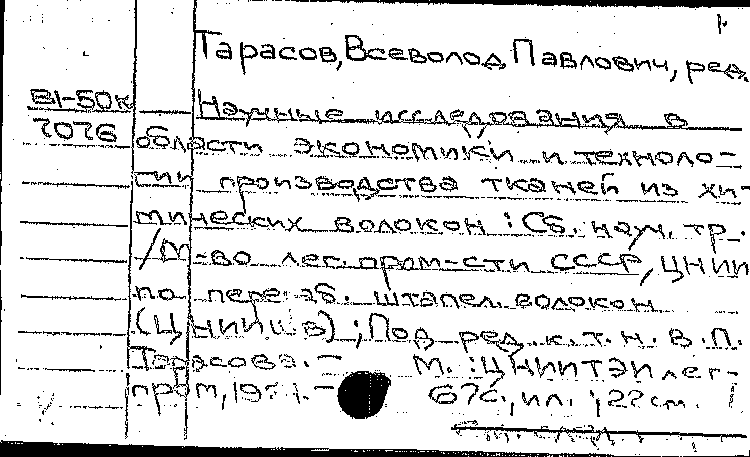 Тарасов, Всеволод Павлович, ред.
В1-50к
7076
Научные исследования в
области экономики и техноло-
гии производства тканей из хи-
мических волокон : Сб. науч. тр.
/М-во лег. пром-сти СССР, ЦНИИ
по перераб. штапел. волокон
(ЦНИИШВ) ; Под ред. к.т.н. В.П.
Тарасова. — М. : ЦНИИТЭИлег-
пром, —
67с., ил. ; 22 см.